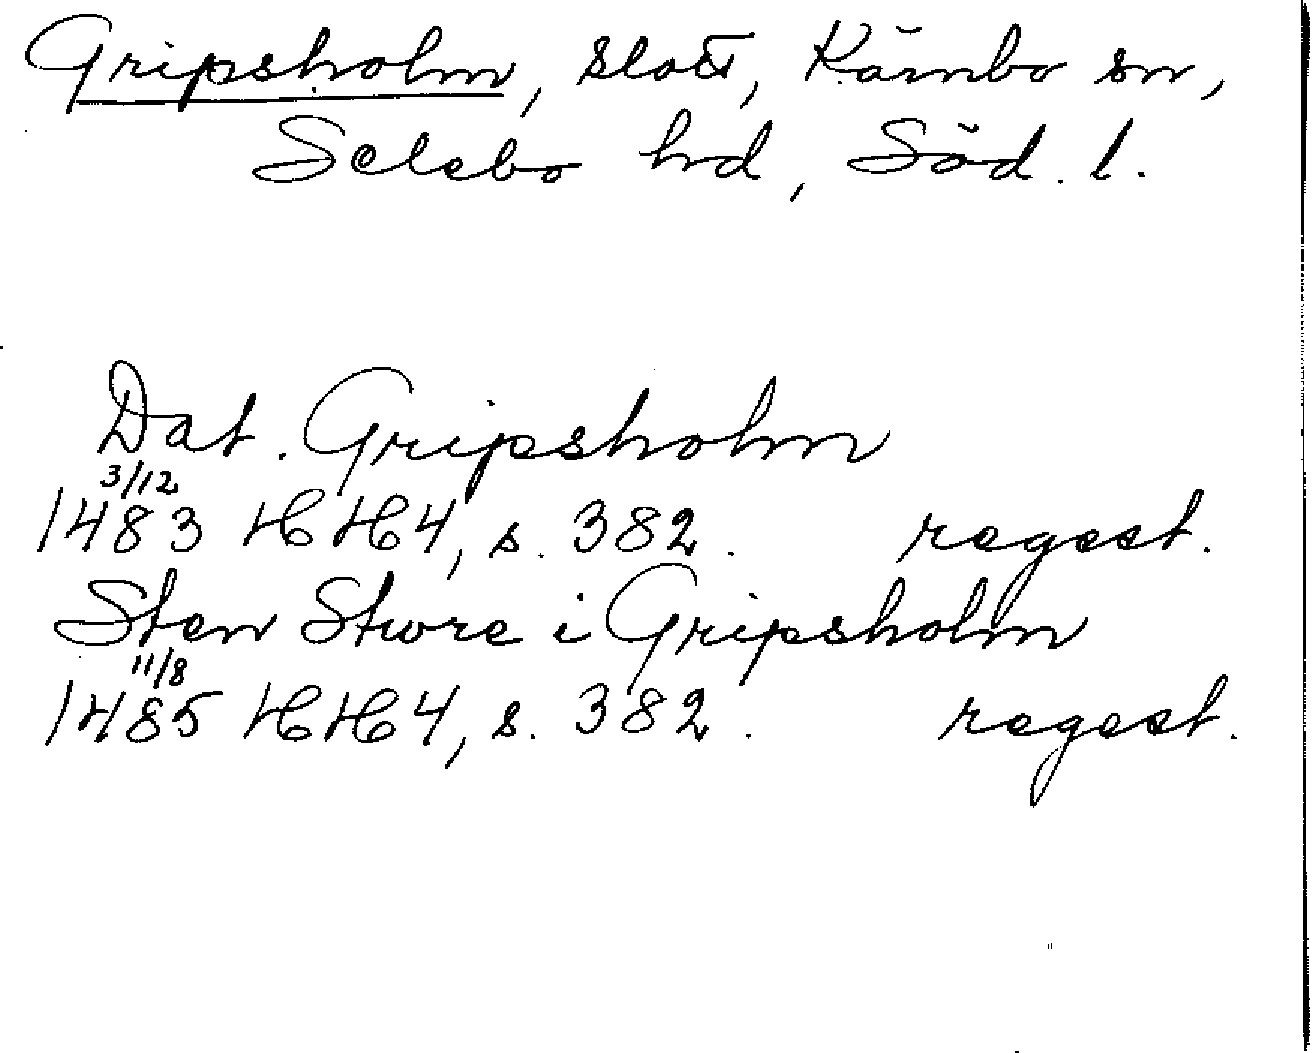 Gripsholm, slott, Kärnbo sn,
Selebo hd, Söd. l.
Dat. Gripsholm
3/12
1483 HH4, s. 382. regest.
Sten Sture i Gripsholm
11/8
1485 HH4, s. 382. regest.